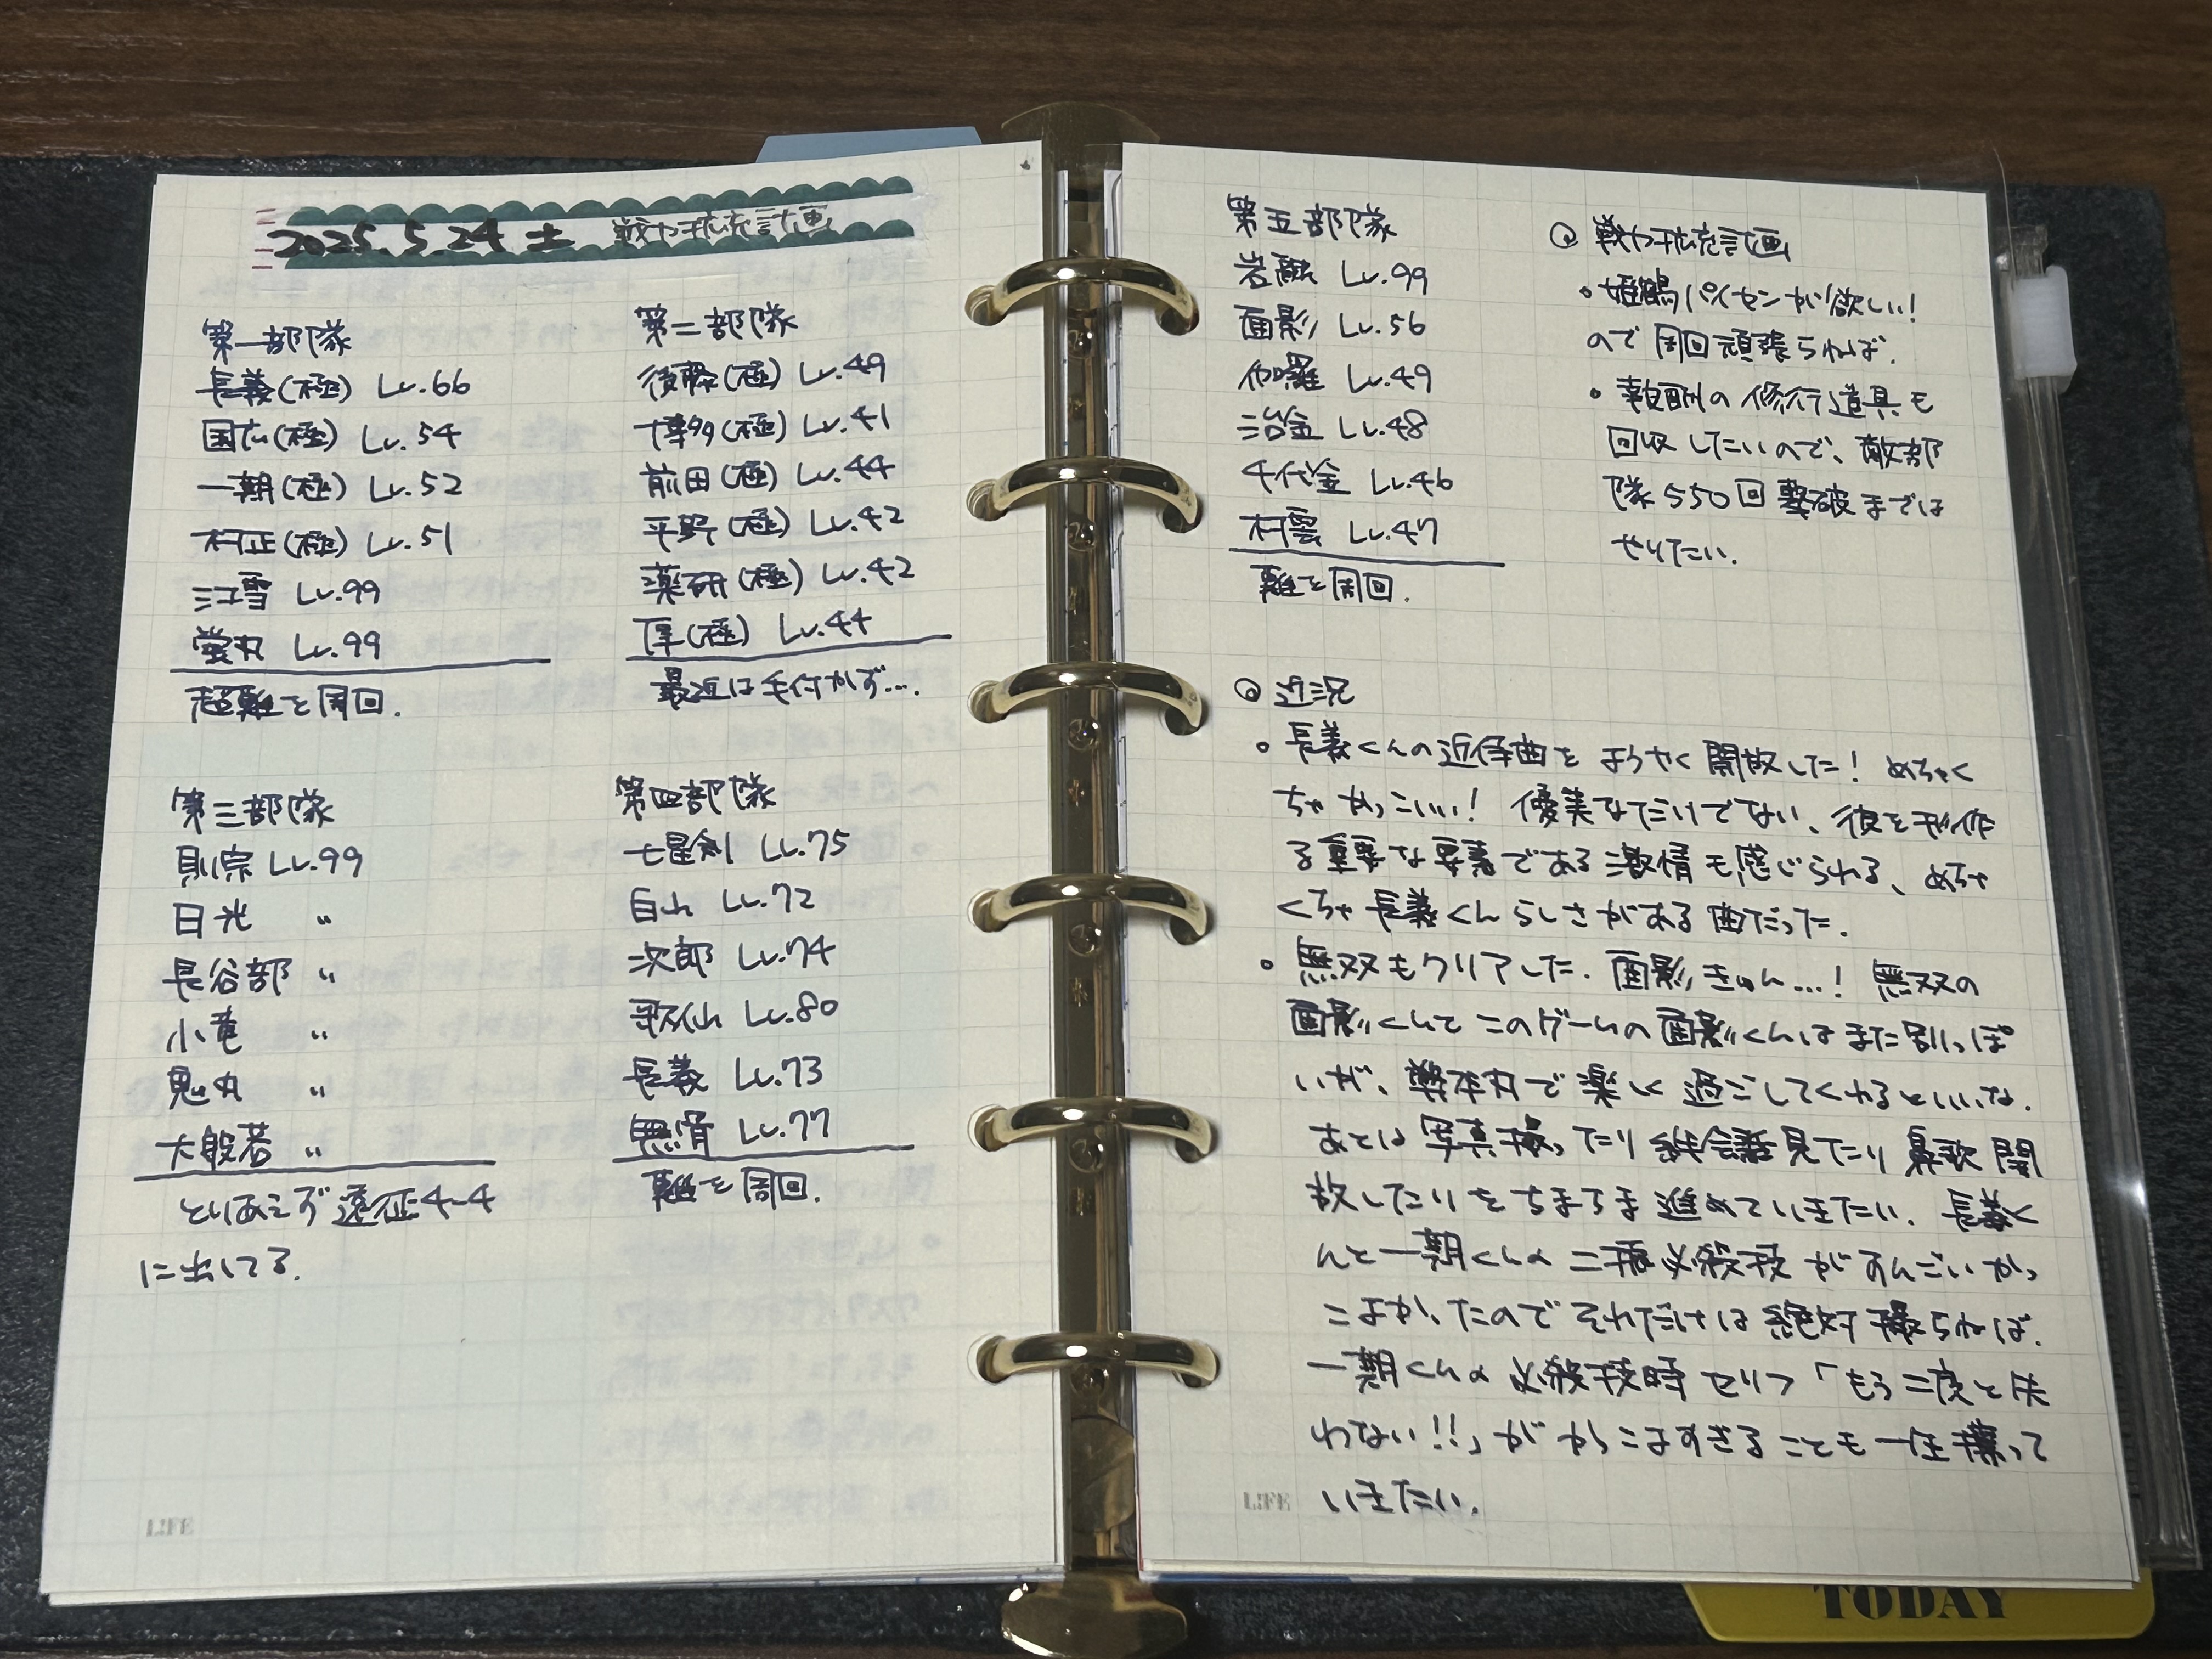 2025.5.24 土 戦力拡充計画
第一部隊
長義(極) Lv.66
国広(極) Lv.54
一期(極) Lv.52
村正(極) Lv.51
江雪 Lv.99
蛍丸 Lv.99
超難を周回.
第二部隊
後藤(極) Lv.49
博多(極) Lv.41
前田(極) Lv.44
平野(極) Lv.42
薬研(極) Lv.42
厚(極) Lv.44
最近は手付かず….
第三部隊
則宗 Lv.99
日光 〃
長谷部 〃
小竜 〃
鬼丸 〃
大般若 〃
とりあえず遠征4-4
に出してる.
第四部隊
七星剣 Lv.75
白山 Lv.72
次郎 Lv.74
歌仙 Lv.80
長義 Lv.73
無骨 Lv.77
難を周回.
第五部隊
岩融 Lv.99
面影 Lv.56
伽羅 Lv.49
治金 Lv.48
千代金 Lv.46
村雲 Lv.47
難を周回.
◎ 戦力拡充計画
• 姫鶴パイセンが欲しい!
ので周回頑張らねば.
• 報酬の修行道具も
回収したいので、敵部
隊550回撃破までは
やりたい.
◎ 近況
• 長義くんの近侍曲をようやく開放した! めちゃく
ちゃかっこいい! 優美なだけでない、彼を形作
る重要な要素である激情も感じられる、めちゃ
くちゃ長義くんらしさがある曲だった.
• 無双もクリアした. 面影きゅん…! 無双の
面影くんとこのゲームの面影くんはまた別っぽ
いが、弊本丸で楽しく過ごしてくれるといいな.
あとは写真撮ったり絆会話見たり鼻歌開
放したりをちまちま進めていきたい. 長義く
んと一期くんの二振必殺技がすんごいかっ
こよかったのでそれだけは絶対撮らねば.
一期くんの必殺技時セリフ「もう二度と失
わない!!」がかっこよすぎることも一生擦って
いきたい.
L!FE
L!FE
TODAY